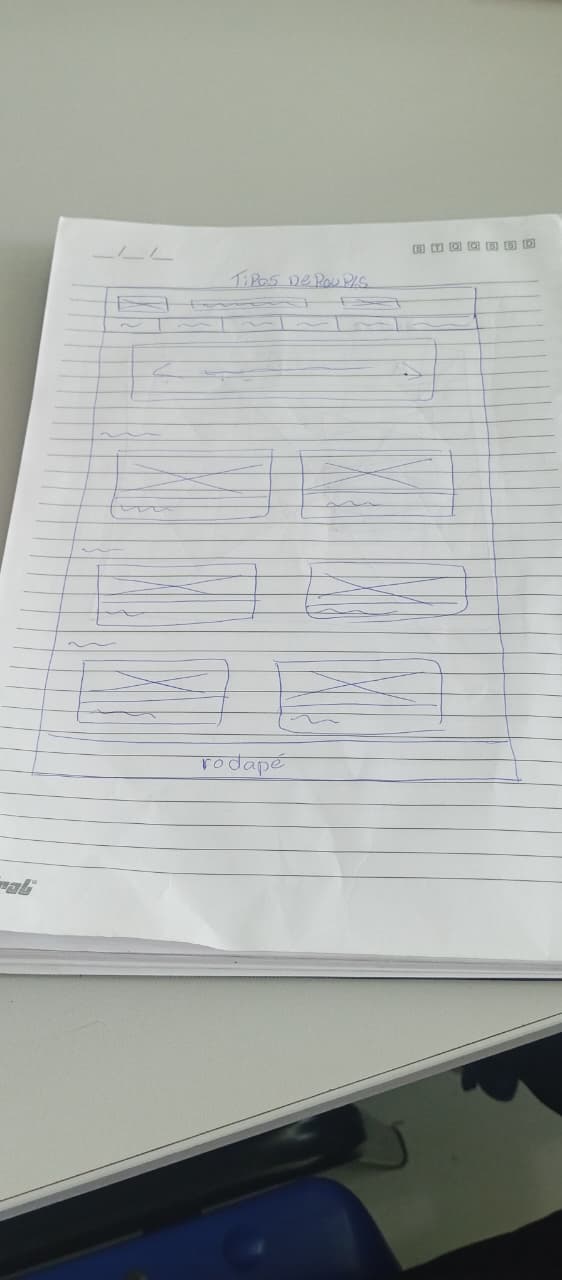 S T Q Q S S D
TIPOS De ROUPAS
rodapé